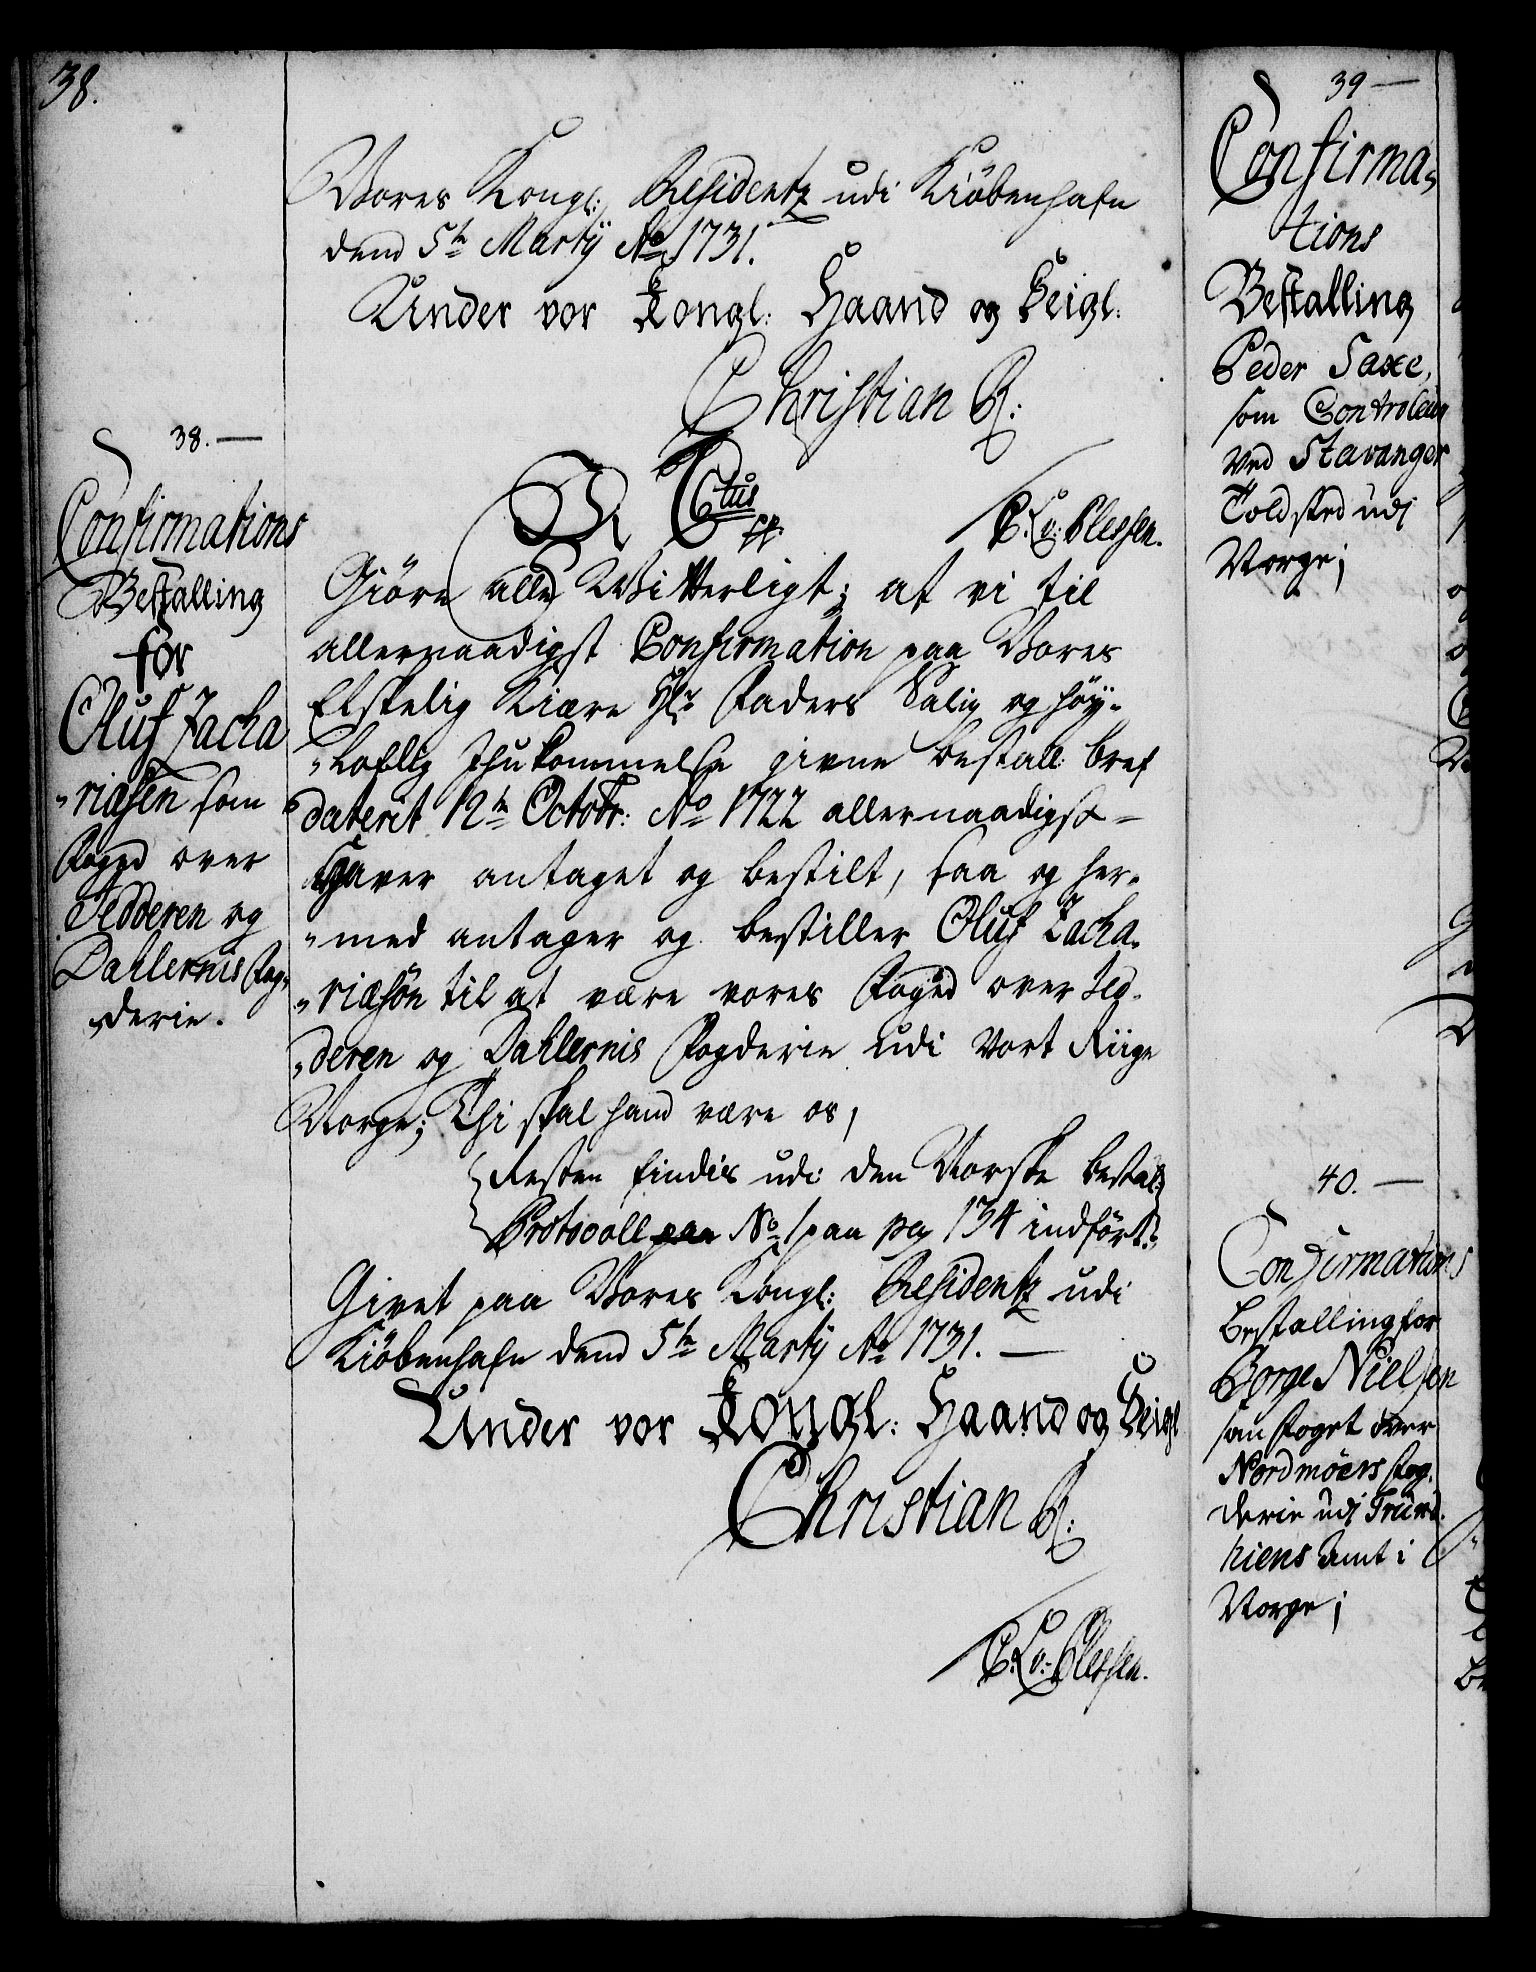 38.
Vores Kongl: Residentz udi Kiöbenhafn
dend 5te Martÿ Ao 1731.
Under vor Kongl: Haand og Seigl:
Christian R:
C: L: v: Plessen.
38.—
Confirmations
Bestalling
for
Oluf Zacha
"riæsen som
Foged over
Jedderen og
Dahlernis Fog-
derie.
Wi Ctus 6te
Giöre alle Witterligt; at vi til
allernaadigst Confirmation paa Vores
Elskelig Kiære Hr Faders Salig og höÿ-
"loflig Ihukommelse givne bestall: bref
daterit 12te Octobr: Ao 1722 allernaadigst –
Haver antaget og bestilt, saa og her-
"med antager og bestiller Oluf Zacha-
"riæsön til at være vores Foged over Jed-
"deren og Dahlernis Fogderie udi Vort Riige
Norge; Thi skal hand være os,
Resten findis udi den Norske bestal:
Protocoll No 1 paa pag 134 indfört:
Givet paa Vores Kongl: Residentz udi
Kiöbenhafn dend 5te Martÿ Ao 1731. —
Under vor Kongl: Haand og Seigl
Christian R:
C: L: v: Plessen.
39 —
Confirma-
tions
Bestalling
Peder Saxe,
som Controleur
ved Stavanger
Toldsted udi
Norge;
40. —
Confirmations
Bestalling for
Borge Nielsen
som Foget over
Nordmöers Fog-
derie udi Trund-
hiens Amt i
Norge;